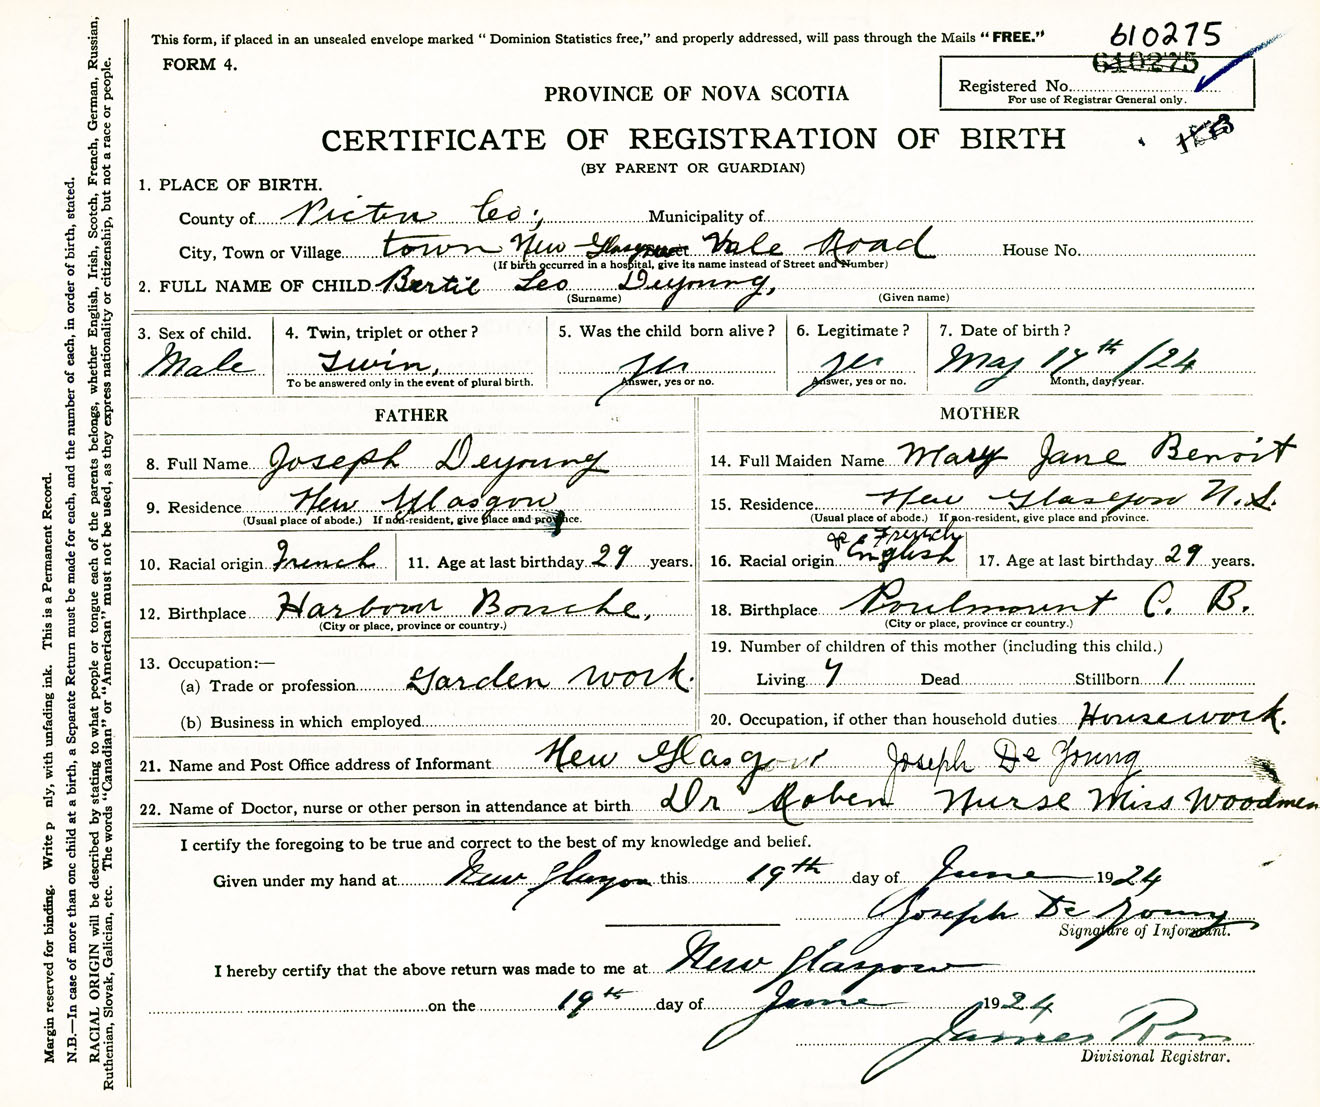 This form, if placed in an unsealed envelope marked “ Dominion Statistics free,” and properly addressed, will pass through the Mails “ FREE.”
610275
FORM 4.
610275
Registered No.
For use of Registrar General only.
PROVINCE OF NOVA SCOTIA
CERTIFICATE OF REGISTRATION OF BIRTH
(BY PARENT OR GUARDIAN)
1. PLACE OF BIRTH.
County of Pictou Co; Municipality of
City, Town or Village town New Glasgow Vale Road House No.
(If birth occurred in a hospital, give its name instead of Street and Number)
2. FULL NAME OF CHILD Bertie Leo Deyoung,
(Surname) (Given name)
3. Sex of child. 4. Twin, triplet or other? 5. Was the child born alive? 6. Legitimate? 7. Date of birth?
Male Twin, yes yes May 17th /24
To be answered only in the event of plural birth. Answer, yes or no. Answer, yes or no. Month, day, year.
FATHER MOTHER
8. Full Name Joseph Deyoung 14. Full Maiden Name Mary Jane Benoit
9. Residence New Glasgow 15. Residence New Glasgow N.S.
(Usual place of abode.) If non-resident, give place and province. (Usual place of abode.) If non-resident, give place and province.
French
10. Racial origin French 11. Age at last birthday 29 years. 16. Racial origin English 17. Age at last birthday 29 years.
12. Birthplace Harbour Bouche, 18. Birthplace Poulmount C. B.
(City or place, province or country.) (City or place, province or country.)
13. Occupation:— 19. Number of children of this mother (including this child.)
(a) Trade or profession Garden work. Living 7 Dead Stillborn 1
(b) Business in which employed 20. Occupation, if other than household duties Housework.
21. Name and Post Office address of Informant New Glasgow Joseph De Young
22. Name of Doctor, nurse or other person in attendance at birth Dr Roben Nurse Miss Woodmen
I certify the foregoing to be true and correct to the best of my knowledge and belief.
Given under my hand at New Glasgow this 19th day of June 1924
Joseph De Young
Signature of Informant.
I hereby certify that the above return was made to me at New Glasgow
on the 19th day of June 1924
James Ross
Divisional Registrar.
Margin reserved for binding. Write p nly, with unfading ink. This is a Permanent Record.
N.B.—In case of more than one child at a birth, a Separate Return must be made for each, and the number of each, in order of birth, stated.
RACIAL ORIGIN will be described by stating to what people or tongue each of the parents belongs, whether English, Irish, Scotch, French, German, Russian,
Ruthenian, Slovak, Galician, etc. The words “Canadian” or “American” must not be used, as they express nationality or citizenship, but not a race or people.